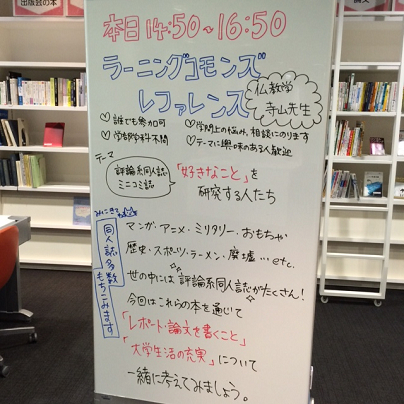 出版会の本
論文
本日 14:50~16:50
ラーニングコモンズ
レファレンス
仏教学
寺山先生
♡誰でも参加可
♡学問上の悩み、相談にのります
♡学部学科不問
♡テーマに興味のある人歓迎
テーマ
評論系同人誌
ミニコミ誌
「好きなこと」を
研究する人たち
みにきてね
同人誌多数
もちこみます
マンガ・アニメ・ミリタリー・おもちゃ
歴史・スポーツ・ラーメン・廃墟…etc.
世の中には評論系同人誌がたくさん!
今回はこれらの本を通じて
「レポート・論文を書くこと」
「大学生活の充実」について
一緒に考えてみましょう。